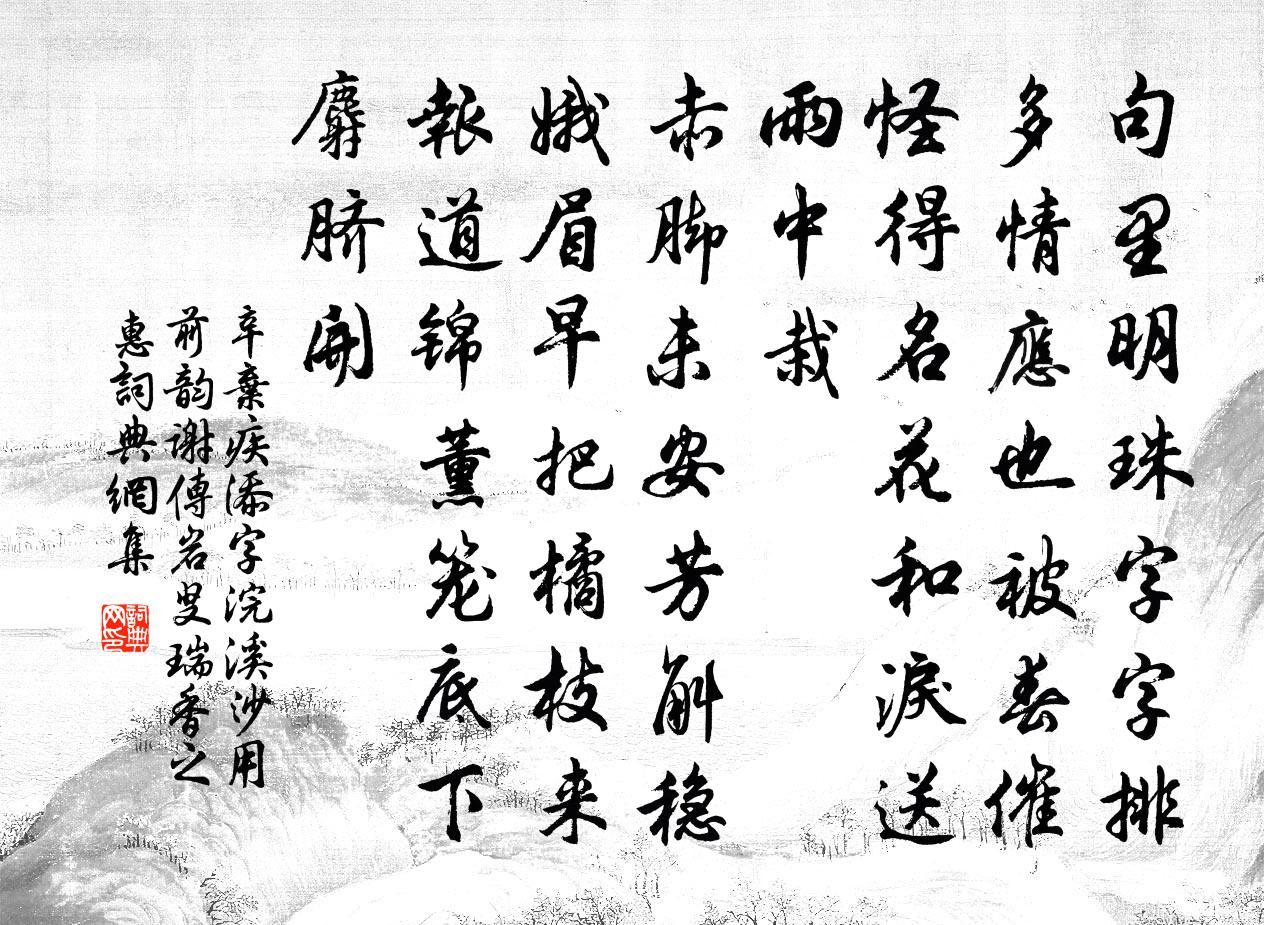 句里明珠字字排
多情應也被春催
怪得名花和淚送
雨中栽
赤脚未安芳斛稳
娥眉早把橘枝来
報道锦薰笼底下
麝脐開
辛棄疾添字浣溪沙用
前韵謝傅岩叟瑞香之
惠詞典網集
詞典
网印